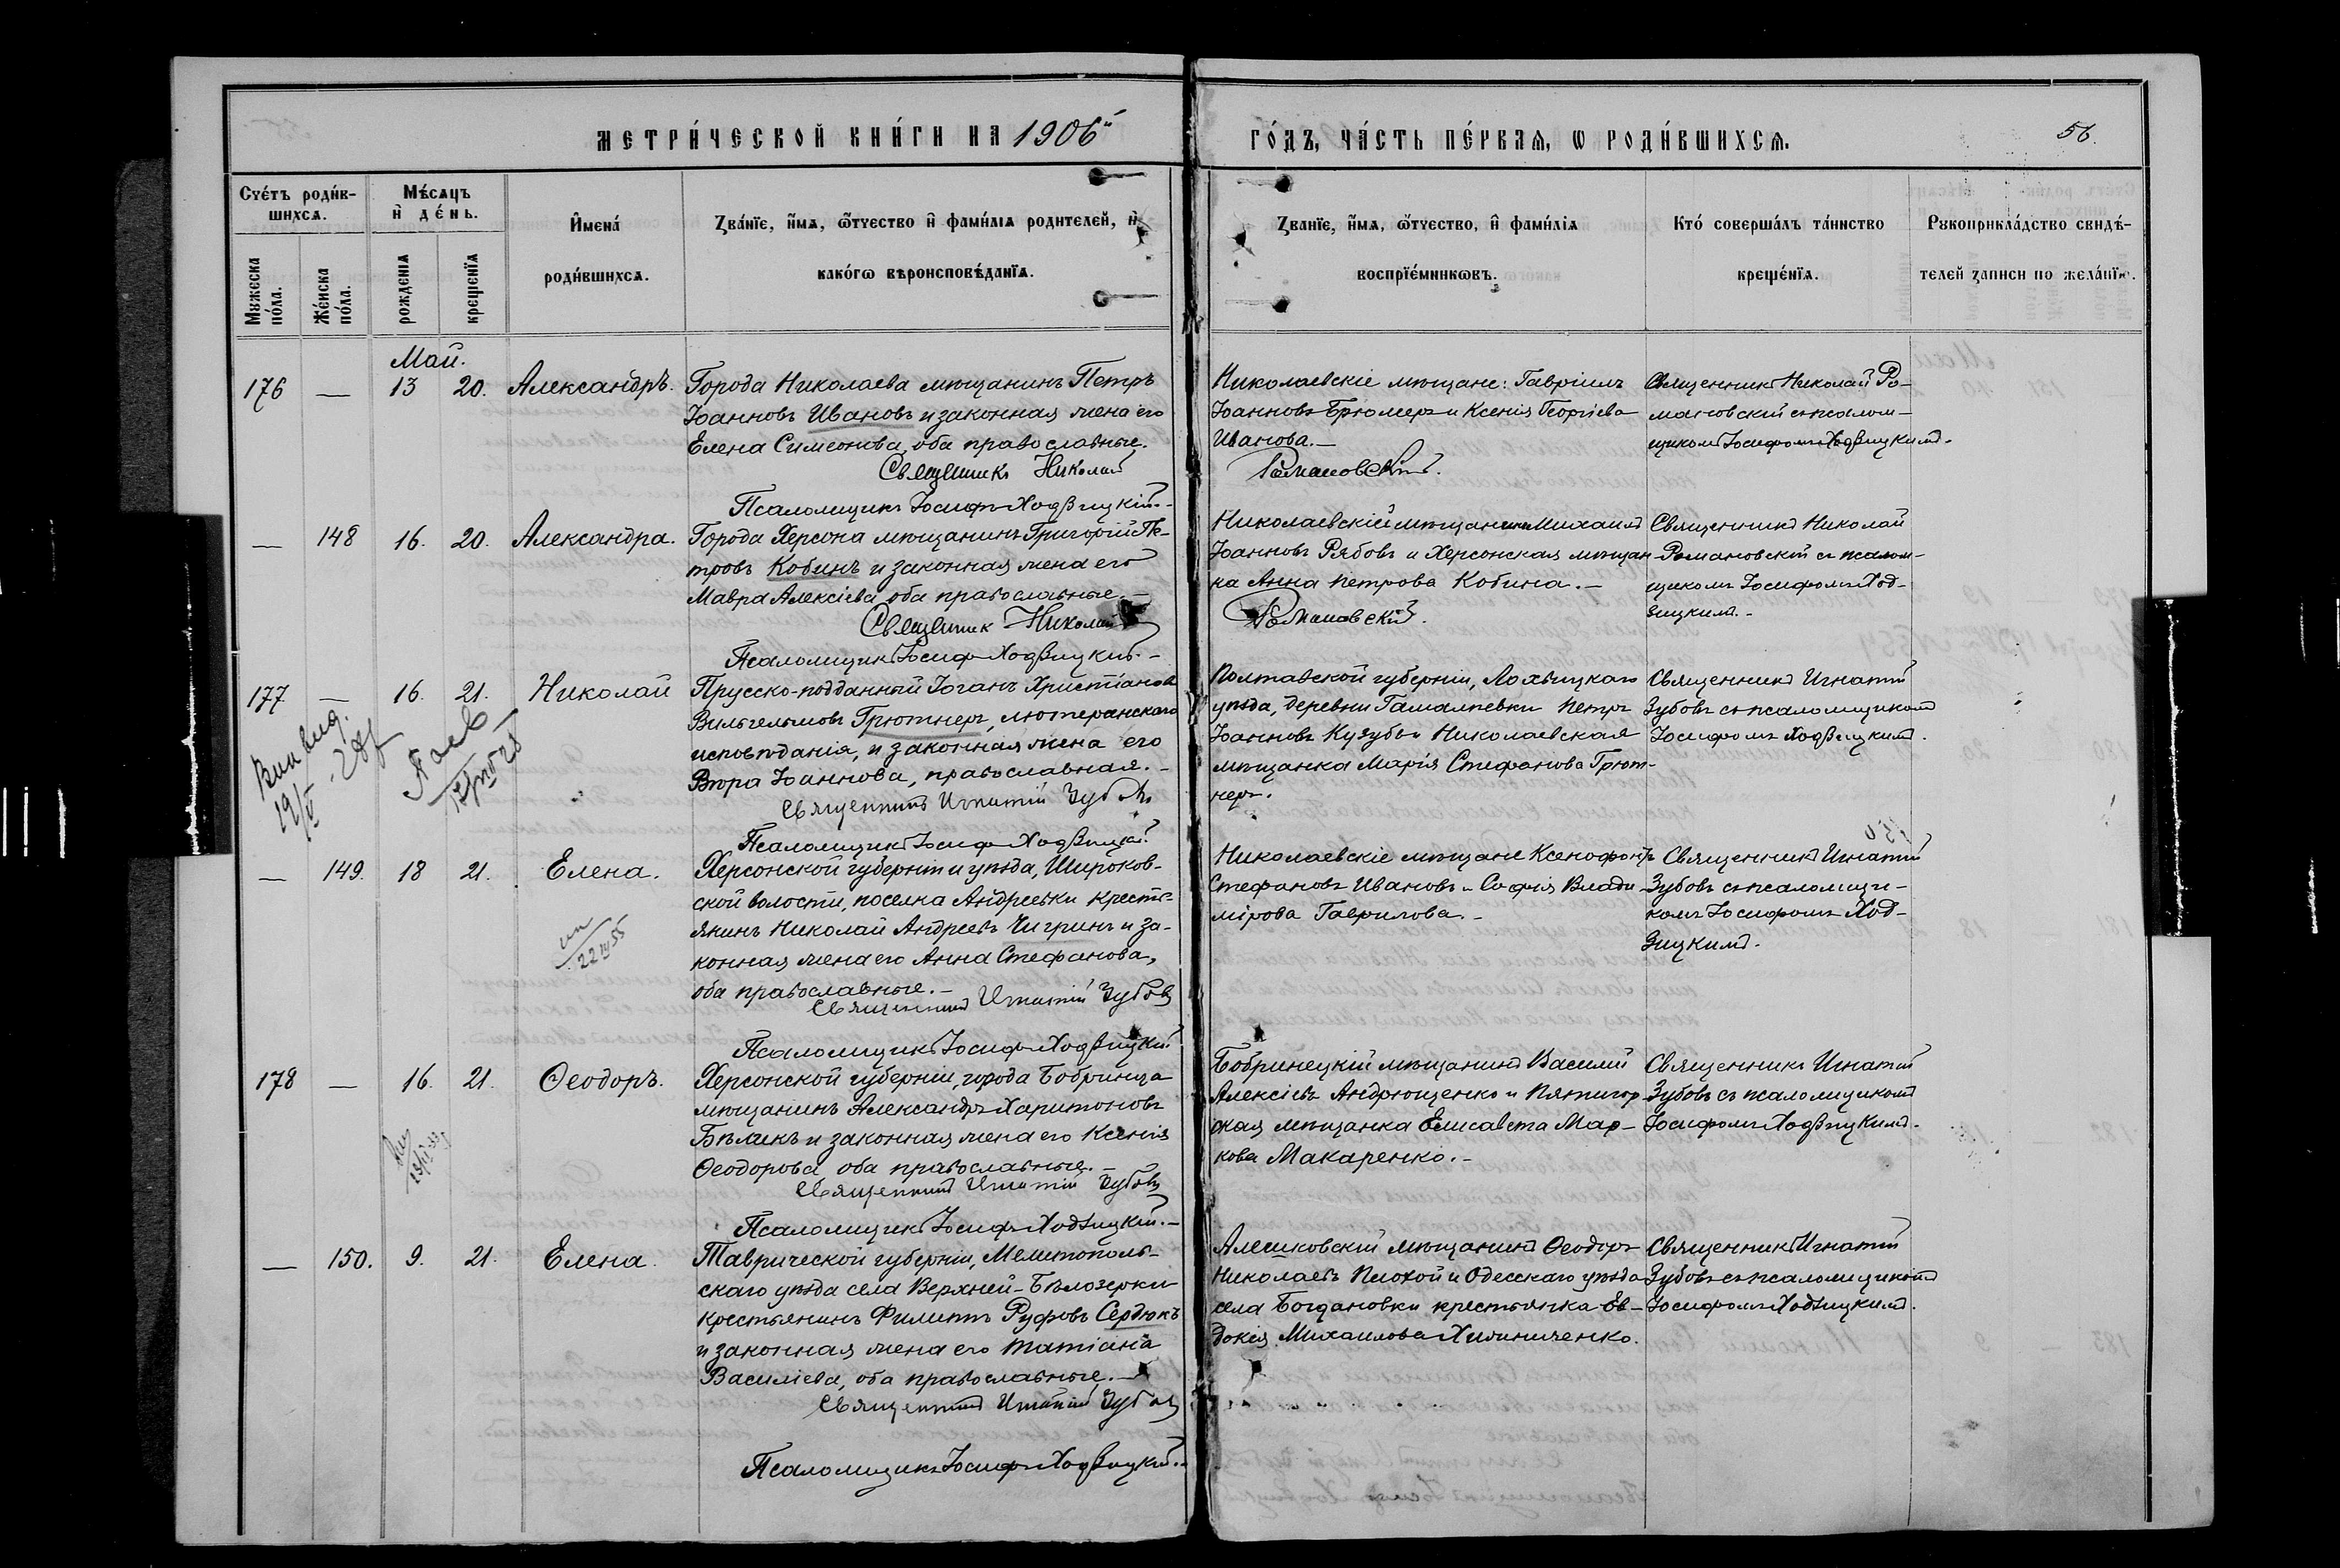 МЕТРИ́ЧЕСКОЙ КНИ́ГИ НА 1906й
ГО́ДЪ, ЧА́СТЬ ПЕ́РВАѦ, Ѡ РОДИ́ВШИХСѦ.
56.
Сче́тъ роди́в-
шихсѧ.
Мѣ́сѧцъ
и҆ де́нь.
И҆мена́
роди́вшихсѧ.
Зва́нїе, и҆́мѧ, ѻ҆́тчество и҆ фами́лїѧ родителей, и҆
како́гѡ вѣроисповѣ́данїѧ.
Мꙋжеска по́ла.
Же́нска по́ла.
рожденїѧ
крещенїѧ
Зва́нїе, и҆́мѧ, ѻ҆́тчество, и҆ фами́лїѧ
воспрїе́мникѡвъ.
Кто́ соверша́лъ та́инство
креще́нїѧ.
Рꙋкоприкла́дство свидѣ́-
телей записи по жела́нїю.
Май.
176 — 13 20. Александръ.
Города Николаева мѣщанинъ Петръ
Іоанновъ Ивановъ и законная жена его
Елена Симеонова, оба православные.
Священникъ Николай
Псаломщикъ Іосифъ Ходзицкій.-
Николаевскіе мѣщане: Гавріилъ
Іоанновъ Брюмеръ и Ксенія Георгіева
Иванова.—
Романовскій.
Священникъ Николай Ро-
мановскій съ псалом-
щикомъ Іосифомъ Ходзицкимъ.
— 148 16. 20. Александра.
Города Херсона мѣщанинъ Григорій Пе-
тровъ Кобинъ и законная жена его
Мавра Алексіева, оба православные.—
Священник Николай
Псаломщикъ Іосифъ Ходзицкій.—
Николаевскій мѣщанинъ Михаилъ
Іоанновъ Рябовъ и Херсонская мѣщан-
ка Анна Петрова Кобина.—
Романовскій.
Священникъ Николай
Романовскій съ псалом-
щикомъ Іосифомъ Ход-
зицкимъ.-
177 — 16. 21. Николай
Прусско-подданный Іоганъ Христіановъ
Вильгельмовъ Грютнеръ, лютеранскаго
исповѣданія, и законная жена его
Вѣра Іоаннова, православная.—
Священникъ Игнатій Зубовъ
Псаломщикъ Іосифъ Ходзицкій
Полтавской губерніи, Лохвицкаго
уѣзда, деревни Гамалѣевки Петръ
Іоанновъ Кузубъ и Николаевская
мѣщанка Марія Стефанова Грют-
неръ.
Священникъ Игнатій
Зубовъ съ псаломщикомъ
Іосифомъ Ходзицкимъ.
— 149. 18 21. Елена.
Херсонской губерніи и уѣзда, Широков-
ской волости, поселка Андреевки кресть-
янинъ Николай Андреевъ Чигринъ и за-
конная жена его Анна Стефанова,
оба православные.—
Священникъ Игнатій Зубовъ
Псаломщикъ Іосифъ Ходзицкій
Николаевскіе мѣщане Ксенофонтъ
Стефановъ Ивановъ и Софія Влади-
мірова Гаврилова.-
Священникъ Игнатій
Зубовъ съ псаломщи-
комъ Іосифомъ Ход-
зицкимъ.
178 — 16. 21. Ѳеодоръ.
Херсонской губерніи, города Бобринца
мѣщанинъ Александръ Харитоновъ
Бѣликъ и законная жена его Ксенія
Ѳеодорова, оба православные.—
Священникъ Игнатій Зубовъ
Псаломщикъ Іосифъ Ходзицкій.—
Бобринецкій мѣщанинъ Василий
Алексіевъ Андрющенко и Пятигор-
ская мѣщанка Елисавета Мар-
кова Макаренко.-
Священникъ Игнатій
Зубовъ съ псаломщикомъ
Іосифомъ Ходзицкимъ.
— 150. 9. 21. Елена.
Таврической губерніи, Мелитополь-
скаго уѣзда села Верхней-Бѣлозерки
крестьянинъ Филиппъ Руфовъ Сердюкъ
и законная жена его Татіана
Василіева, оба православные.—
Священникъ Игнатій Зубовъ
Псаломщикъ Іосифъ Ходзицкій.
Алешковскій мѣщанинъ Ѳеодоръ
Николаевъ Плохой и Одесскаго уѣзда
села Богдановки крестьянка Ев-
докія Михаилова Хилиниченко.
Священникъ Игнатій
Зубовъ съ псаломщикомъ
Іосифомъ Ходзицкимъ.